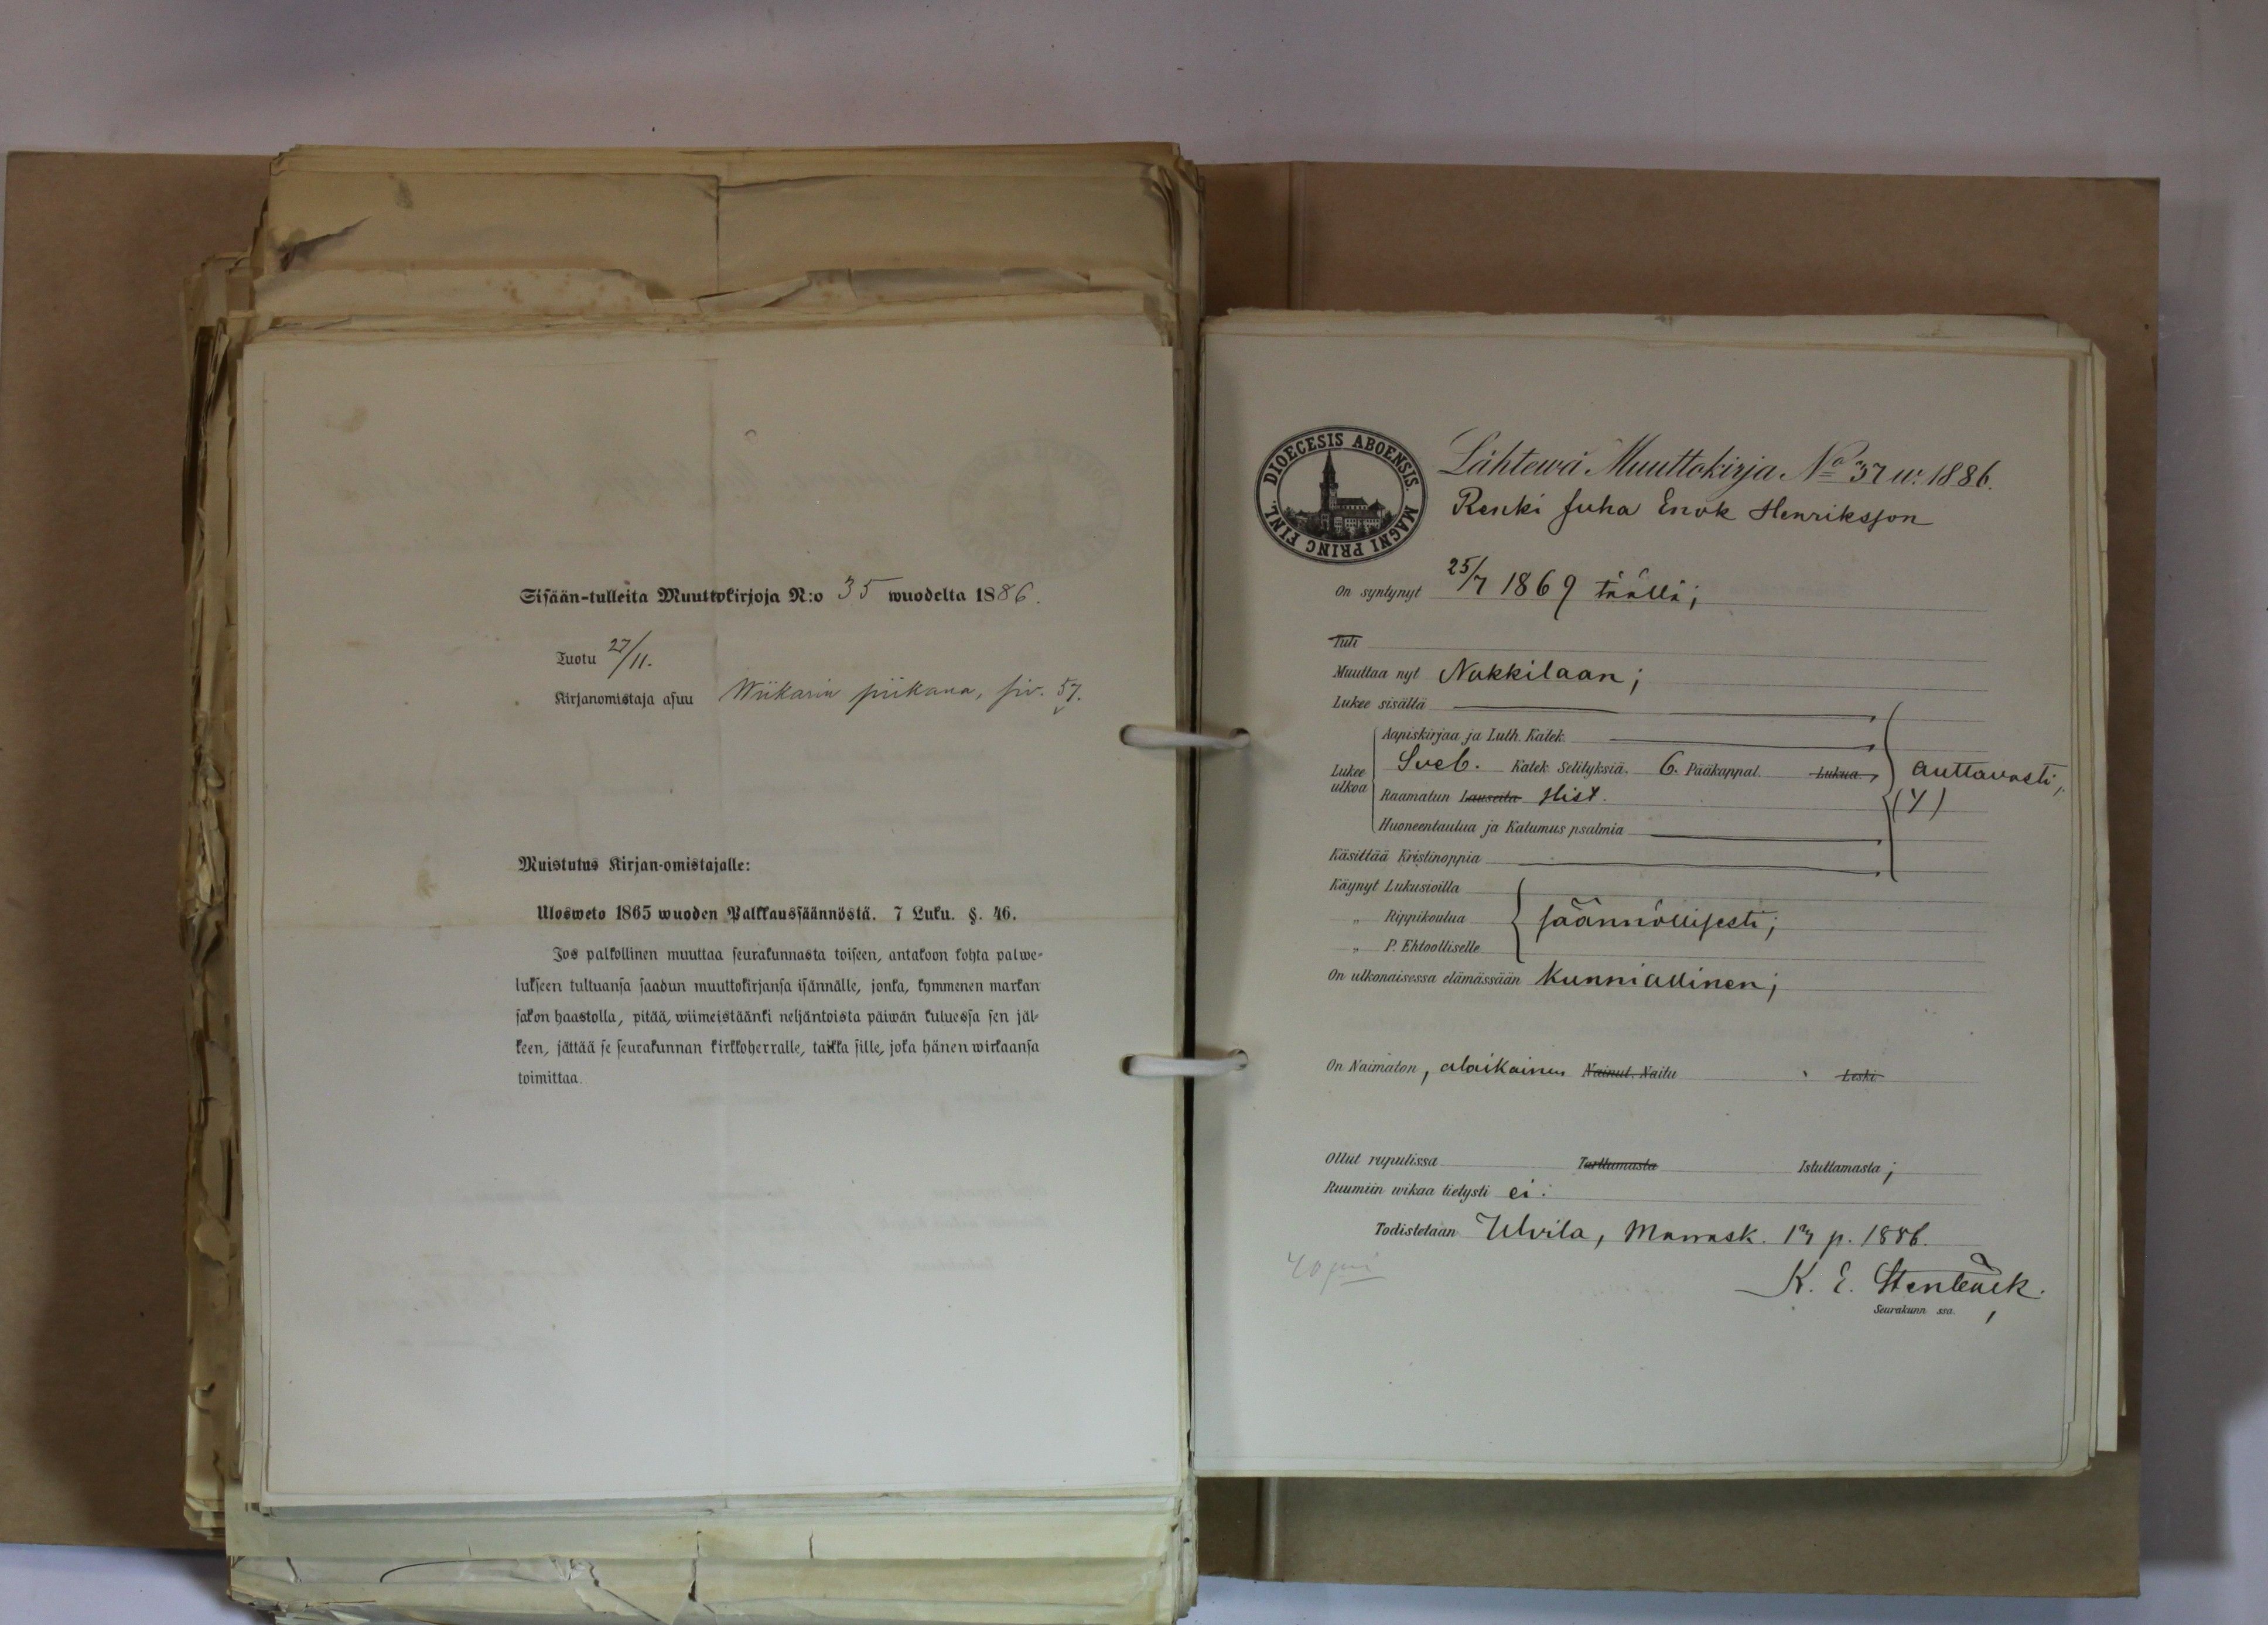 Sisään-tulleita Muuttokirjoja N:o 35 wuodelta 1886.
Tuotu 27/11.
Kirjanomistaja asuu Wiikarin piikana, siv. 57.
Muistutus Kirjan-omistajalle:
Ulosweto 1865 wuoden Palkkaussäännöstä. 7 Luku. §. 46.
Jos palkollinen muuttaa seurakunnasta toiseen, antakoon kohta palwe-
lukseen tultuansa saadun muuttokirjansa isännälle, jonka, kymmenen markan
sakon haastolla, pitää, wiimeistäänki neljäntoista päiwän kuluessa sen jäl-
keen, jättää se seurakunnan kirkkoherralle, taikka sille, joka hänen wirkaansa
toimittaa.
DIOECESIS ABOENSIS. MAGNI PRINC FINL.
Lähtewä Muuttokirja No 37 w. 1886.
Renki Juha Enok Henriksson
On syntynyt 25/7 1869 täällä;
Tuli
Muuttaa nyt Nakkilaan;
Lukee sisältä
Aapiskirjaa ja Luth. Katek.
Lukee ulkoa Sveb. Katek Selityksiä. 6. Pääkappal. Lukua auttavasti,
Raamatun Lauseita Hist. (Y)
Huoneentaulua ja Katumus psalmia
Käsittää Kristinoppia
Käynyt Lukusioilla
" Rippikoulua säännöllisesti;
" P. Ehtoolliselle
On ulkonaisessa elämässään kunniallinen;
On Naimaton, alaikäinen Nainut. Naitu Leski
Ollut rupulissa Tarttumasta Istuttamasta;
Ruumiin wikaa tietysti ei.
Todistetaan Ulvila, Marrask. 17 p. 1886.
40 pni
K. E. Stenbäck.
Seurakunn ssa.